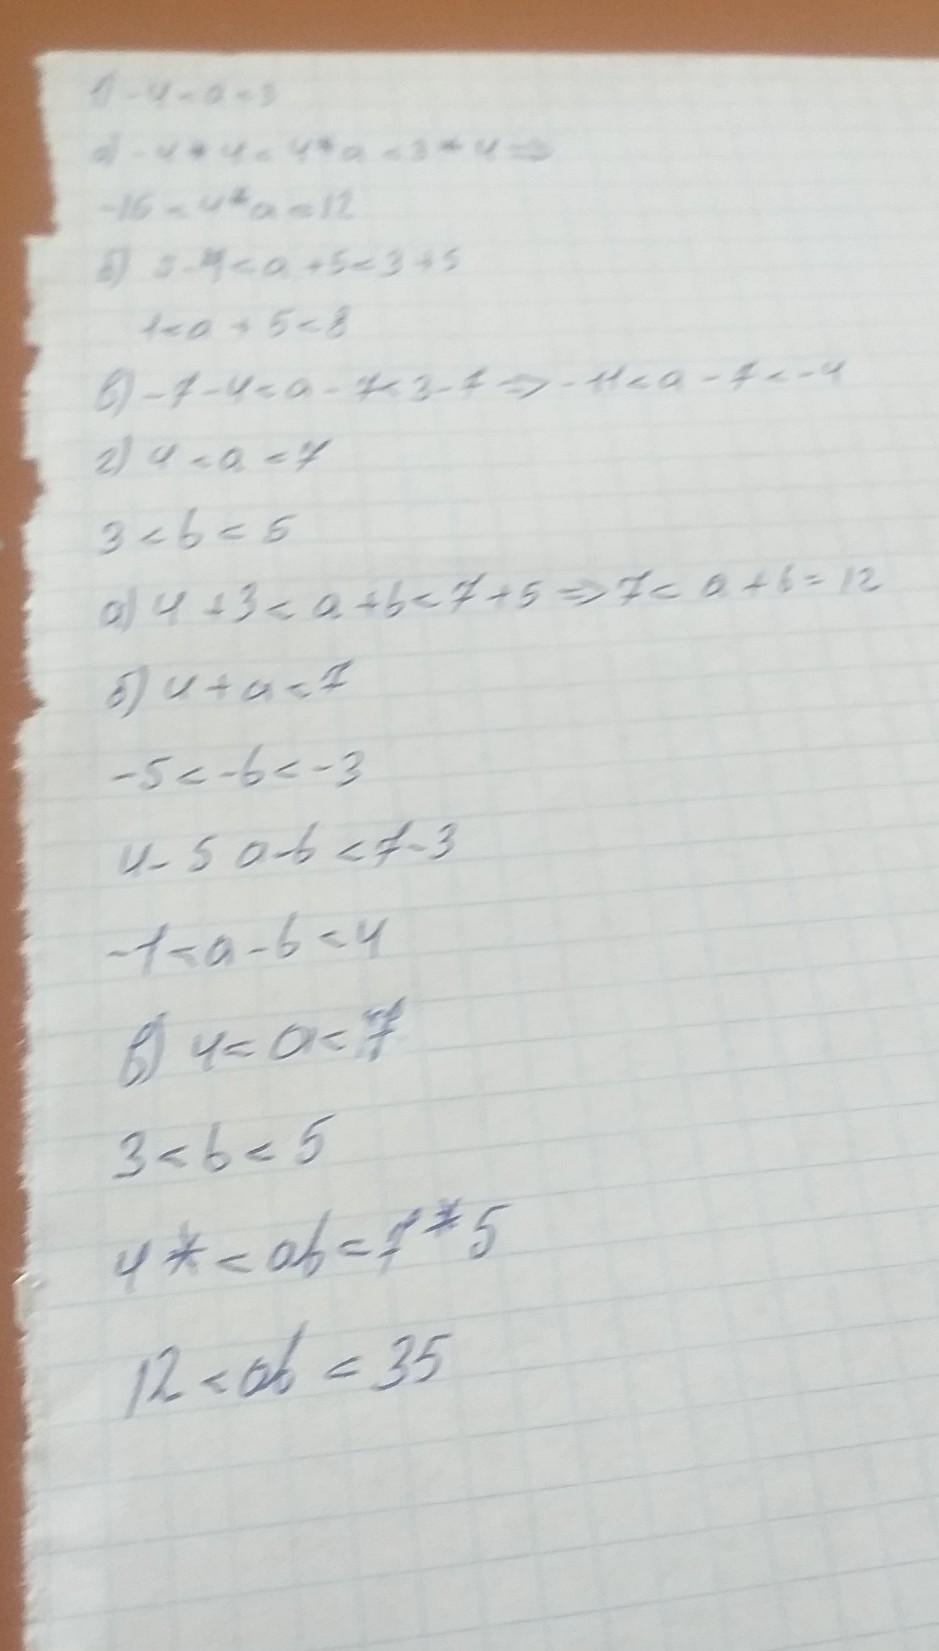 1) -4 < a < 3
а) -4 * 4 < 4 * a < 3 * 4 =>
-16 < 4 * a < 12
б) 5 - 4 < a + 5 < 3 + 5
1 < a + 5 < 8
в) -7 - 4 < a - 7 < 3 - 7 => -11 < a - 7 < -4
2) 4 < a < 7
3 < b < 5
а) 4 + 3 < a + b < 7 + 5 => 7 < a + b = 12
б) 4 + a < 7
-5 < -b < -3
4 - 5 a - b < 7 - 3
-1 < a - b < 4
в) 4 < a < 7
3 < b < 5
4 * < ab = 7 * 5
12 < ab < 35